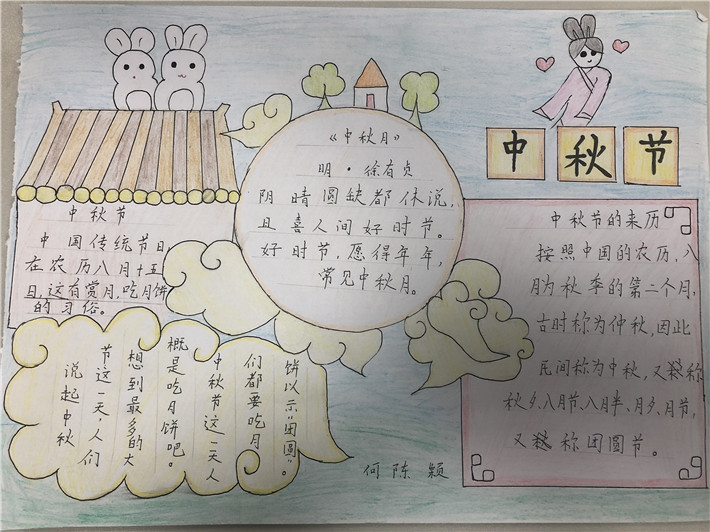 中秋节
《中秋月》
明·徐有贞
阴晴圆缺都休说,
且喜人间好时节。
好时节,愿得年年,
常见中秋月。
中秋节
中国传统节日,
在农历八月十五
日,这有赏月,吃月饼
的习俗。
说起中秋
节这一天,人们
想到最多的大
概是吃月饼吧。
中秋节这一天人
们都要吃月
饼以示“团圆”。
中秋节的来历
按照中国的农历,八
月为秋季的第二个月,
古时称为仲秋,因此
民间称为中秋,又称
秋夕、八月节、八月半、月夕、月节,
又称团圆节。
何陈颖